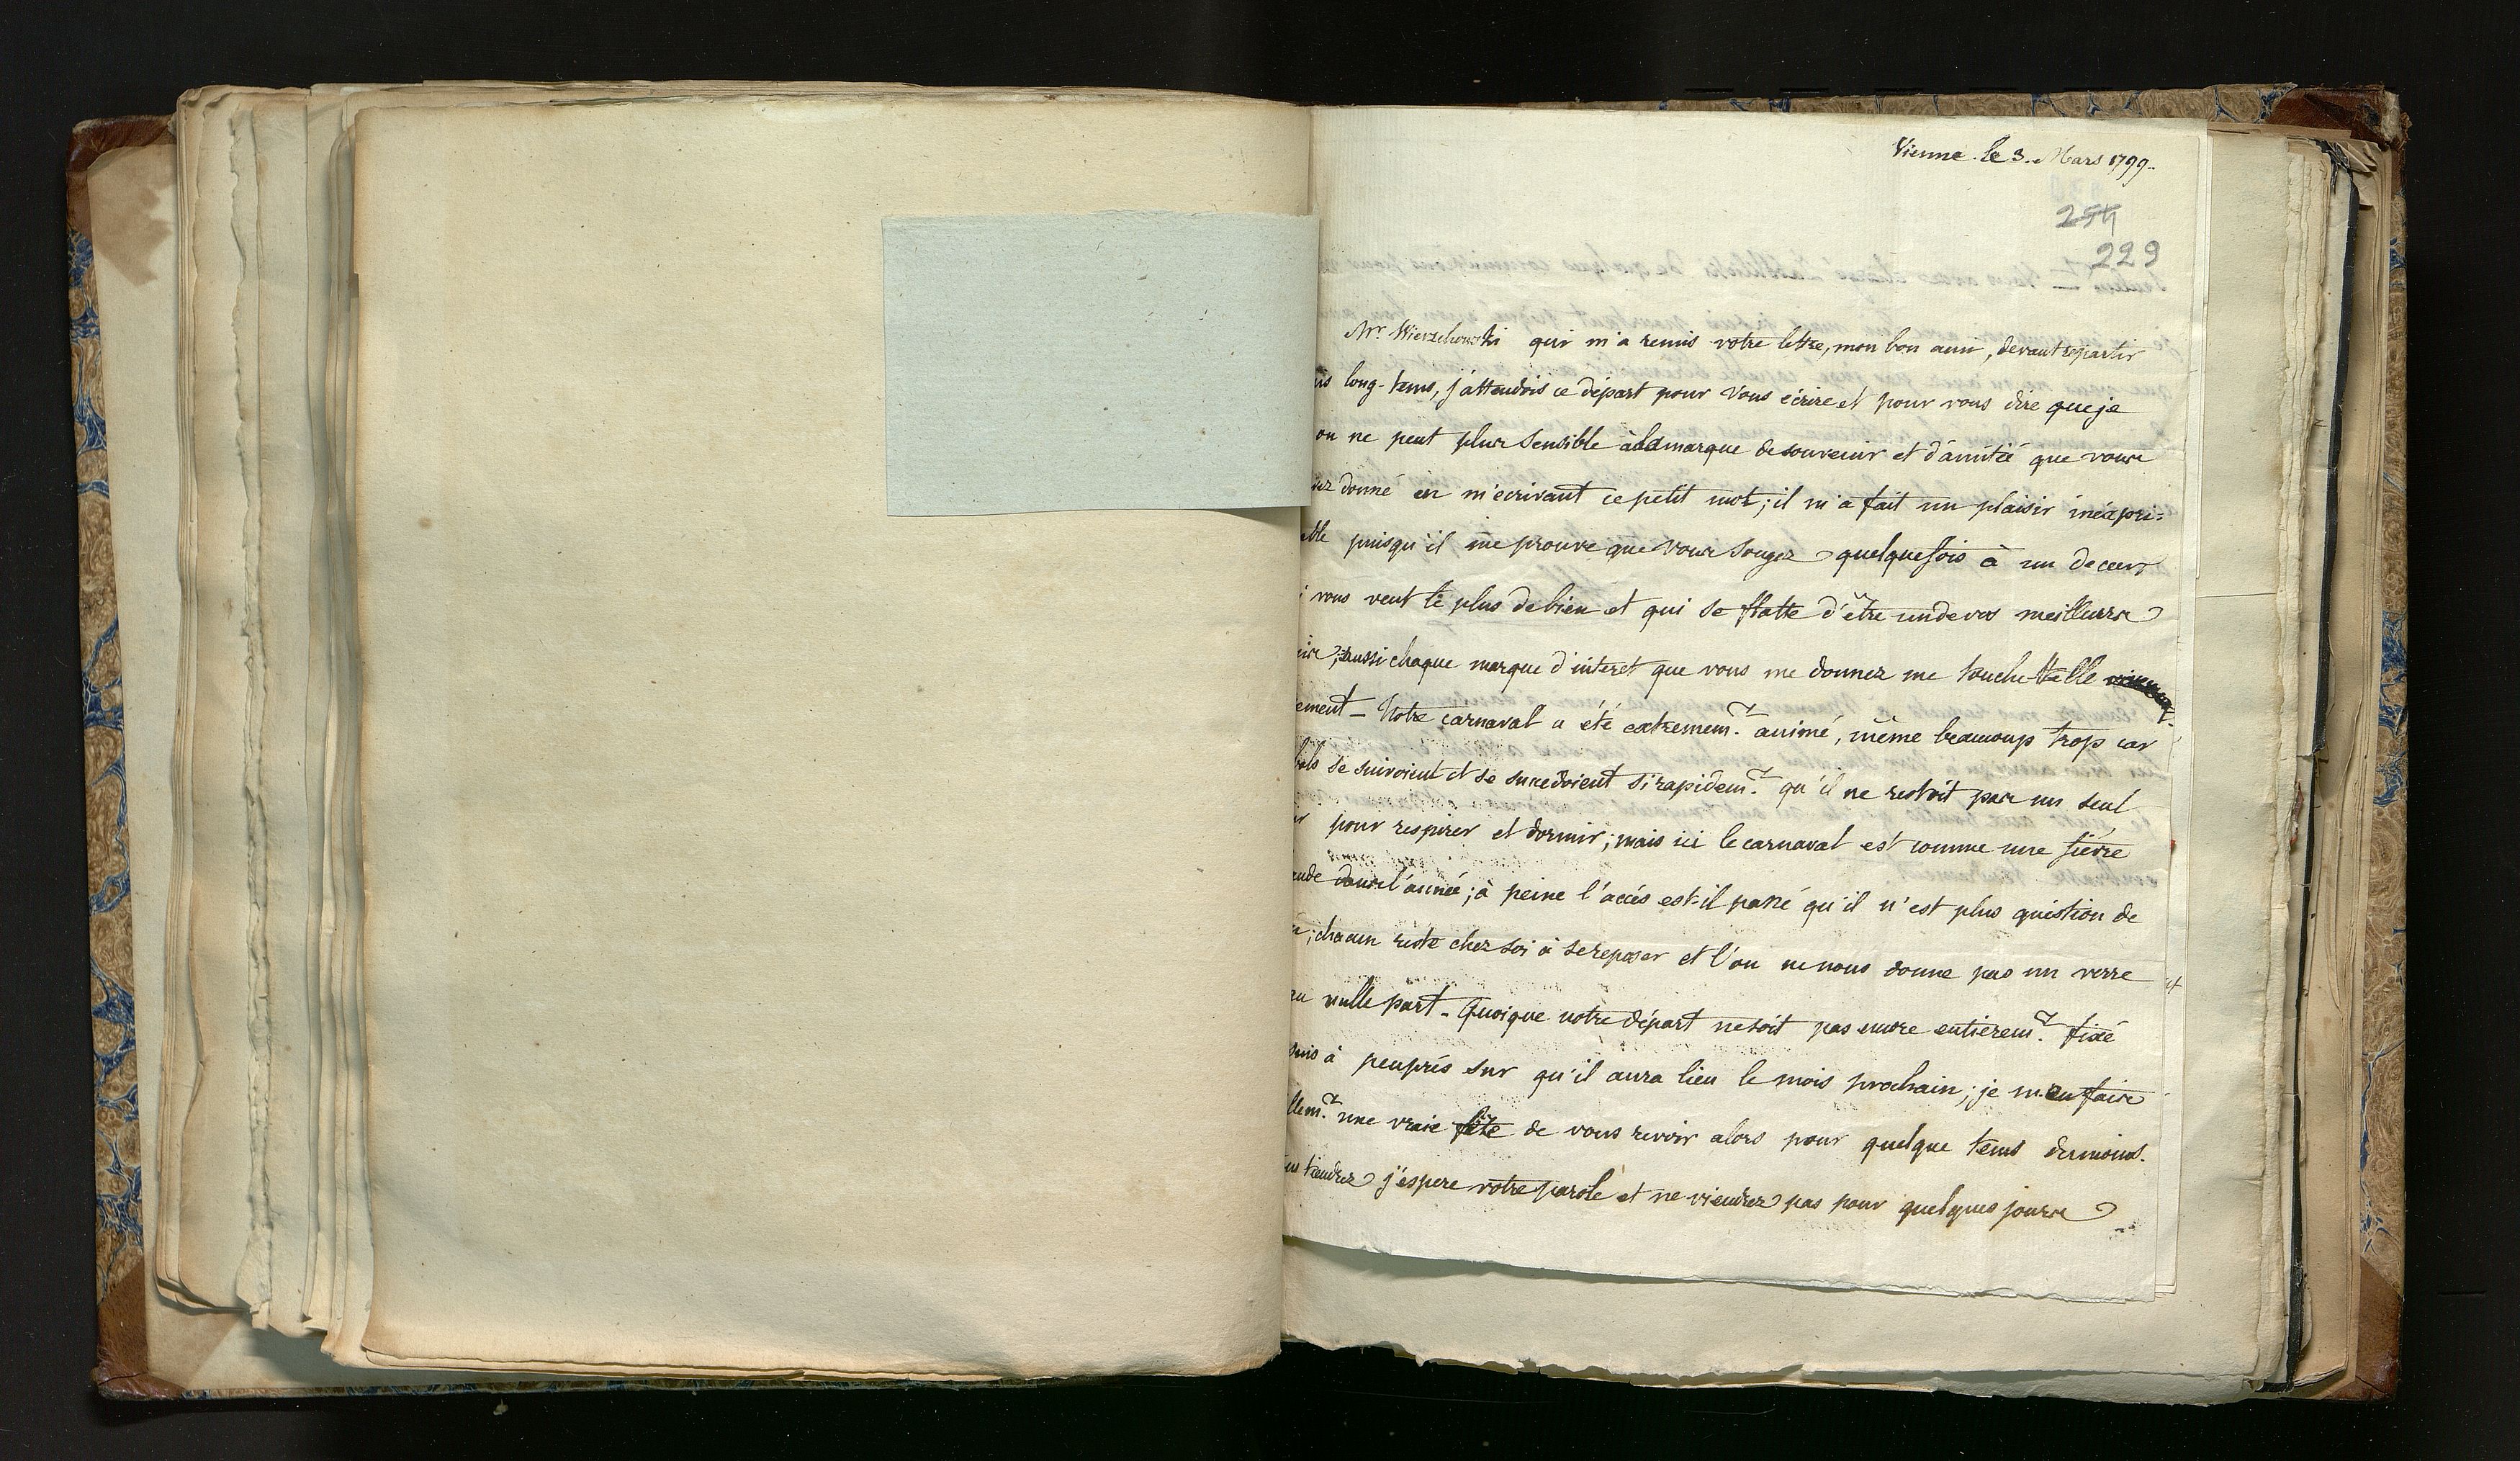 Vienne. le 3. Mars 1799.
254
229
Mr. Wierzchowski qui m'a remis votre lettre, mon bon ami, devant repartir
long-tems, j'attendois ce départ pour vous écrire et pour vous dire que je
on ne peut plus sensible à la marque de souvenir et d'amitié que vous
donné en m'ecrivant ce petit mot; il m'a fait un plaisir inexpri=
able puisqu'il me prouve que vous songez quelquefois à un de ceux
vous veut le plus de bien et qui se flatte d'être un de vos meilleurs
aussi chaque marque d'interet que vous me donnez me touche-t-elle
ement - Notre carnaval a été extremem.t animé, même beaucoup trop car
bals se suivoient et se succedoient si rapidem.t qu'il ne restoit pas un seul
pour respirer et dormir; mais ici le carnaval est comme une fiévre
dans l'année; à peine l'accés est-il passé qu'il n'est plus question de
; chacun reste chez soi à se reposer et l'on ne nous donne pas un verre
nulle part - Quoique notre départ ne soit pas encore entierem.t fixé
suis à peuprés sur qu'il aura lieu le mois prochain; je m'en fais
llem.t une vraie fête de vous revoir alors pour quelque tems du moins.
tiendrez j'espere votre parole et ne viendrez pas pour quelques jours